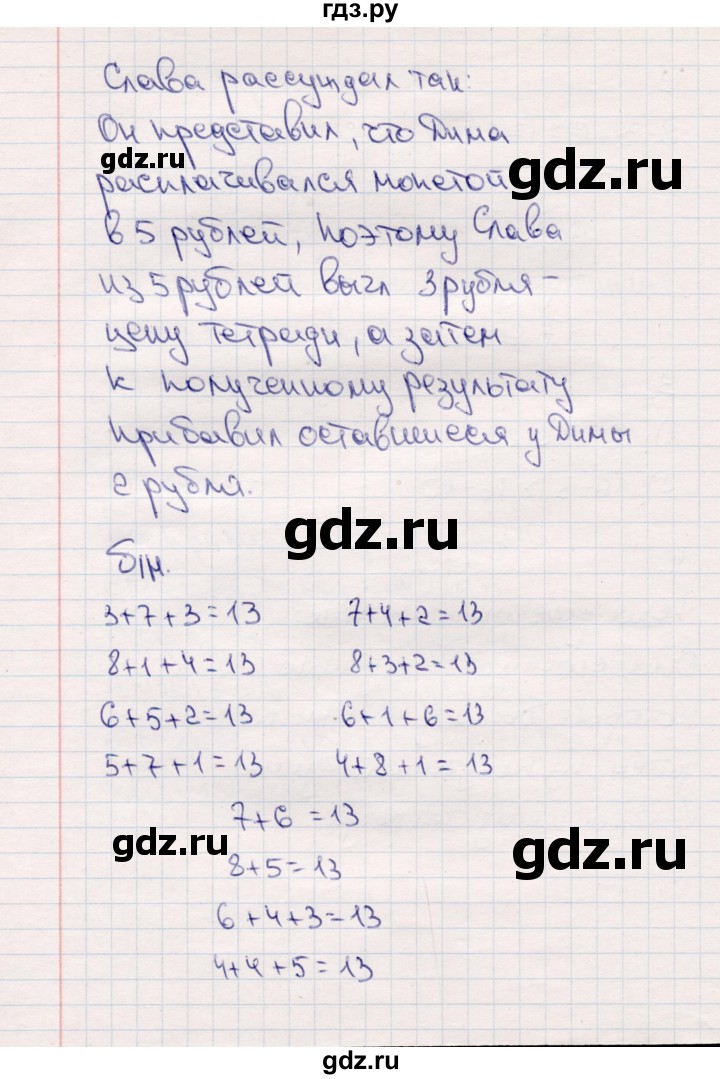 гдз.ру
Слава рассуждал так:
Он представил, что Дима
gdz.ru
расплачивался монетой
gdz.ru
в 5 рублей, поэтому Слава
из 5 рублей выгл 3 рубля -
цену тетради, а затем
к полученному результату
прибавил оставшиеся у Димы
2 рубля.
gdz.ru
3+7+3=13 7+4+2=13
8+1+4=13 8+3+2=13
6+5+2=13 6+1+6=13
5+7+1=13 4+8+1=13
7+6=13
gdz.ru
gdz.ru
8+5=13
6+4+3=13
4+4+5=13
gdz.ru